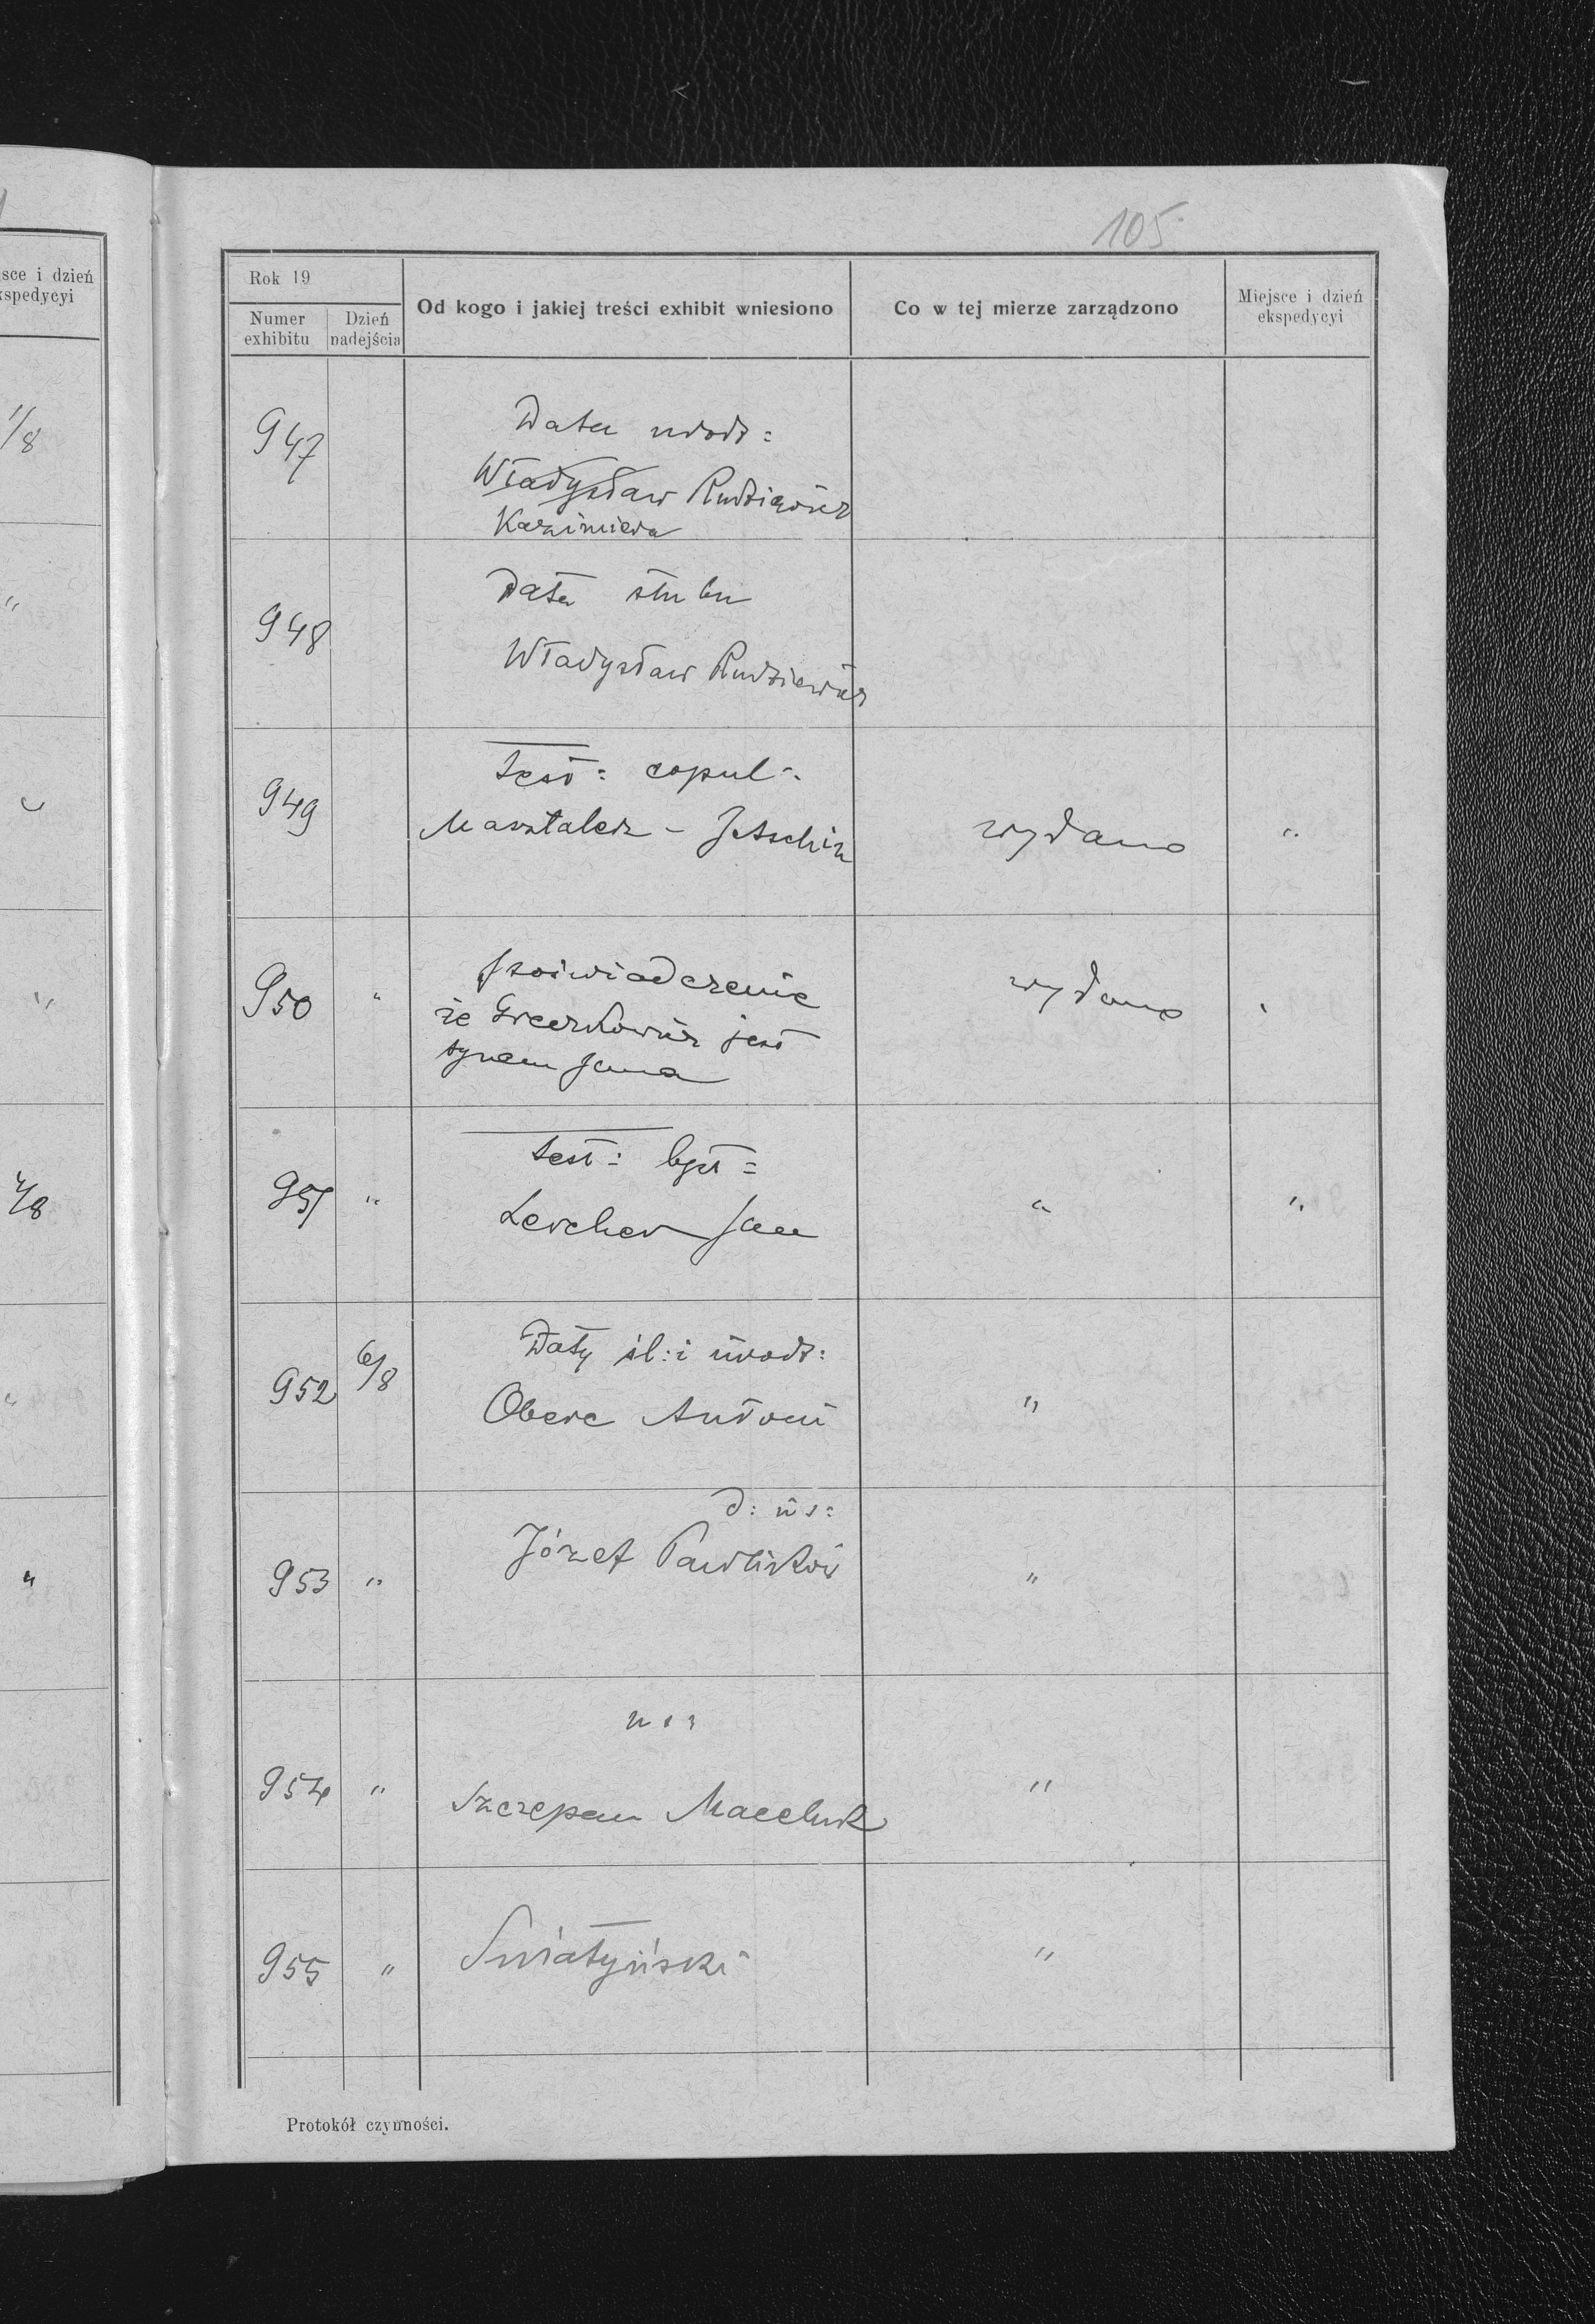 105
sce i dzień
kspedycyi
1/8
"
"
"
4/8
"
"
Rok 19
Numer exhibitu
Dzień nadejścia
Od kogo i jakiej treści exhibit wniesiono
Co w tej mierze zarządzono
Miejsce i dzień ekspedycyi
947
Data urodz:
Władysław Rudziewicz
Kazimiera
948
Data ślubu
Władysław Rudziewicz
949
test: copul:
Marstaler - Jetschin
wydano "
950 "
poświadczenie
wydano "
że jest
synem Jana
951 "
test: bpt:
Lercher Jan
" "
952 6/8
Daty śl: i urodz:
Oberc Antoni
"
953 "
d: ur:
Józef
"
954 "
Szczepan Maceluk
"
955 " Śniatyński "
Protokół czynności.